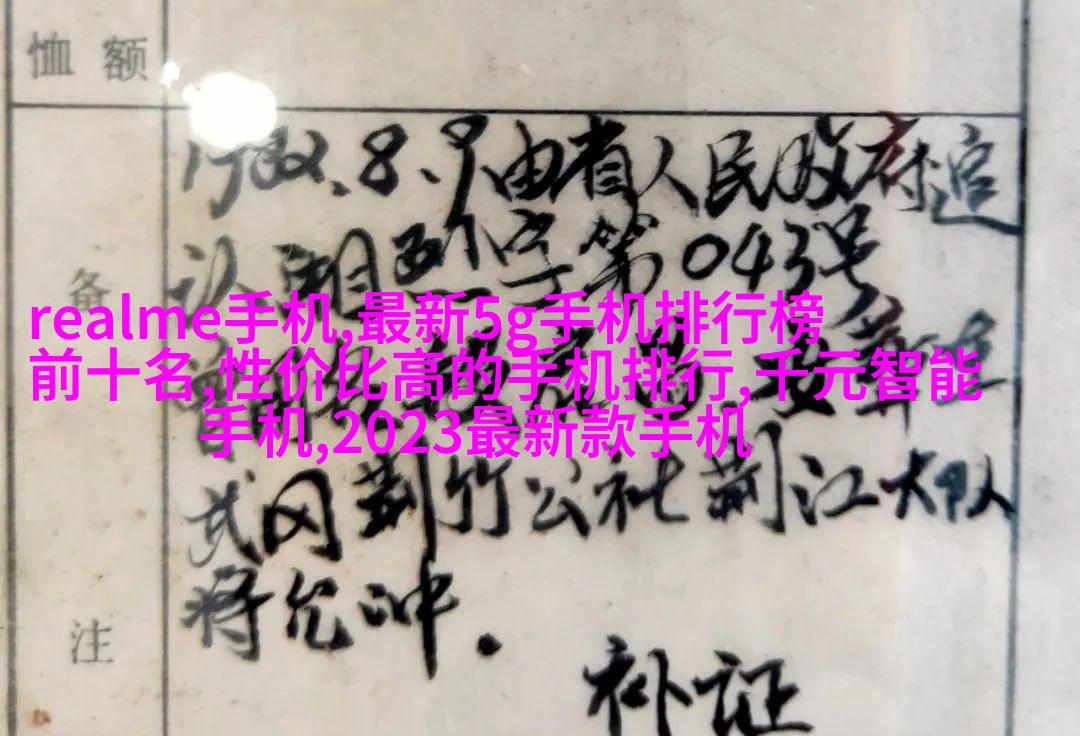 恤额
1982.8.9由省人民政府追
认，湘烈字第043号
备
realme手机,最新5g手机排行榜
前十名,性价比高的手机排行,千元智能
手机,2023最新款手机
武冈荆竹公社荆江大队
蒋允冲.
注
补证